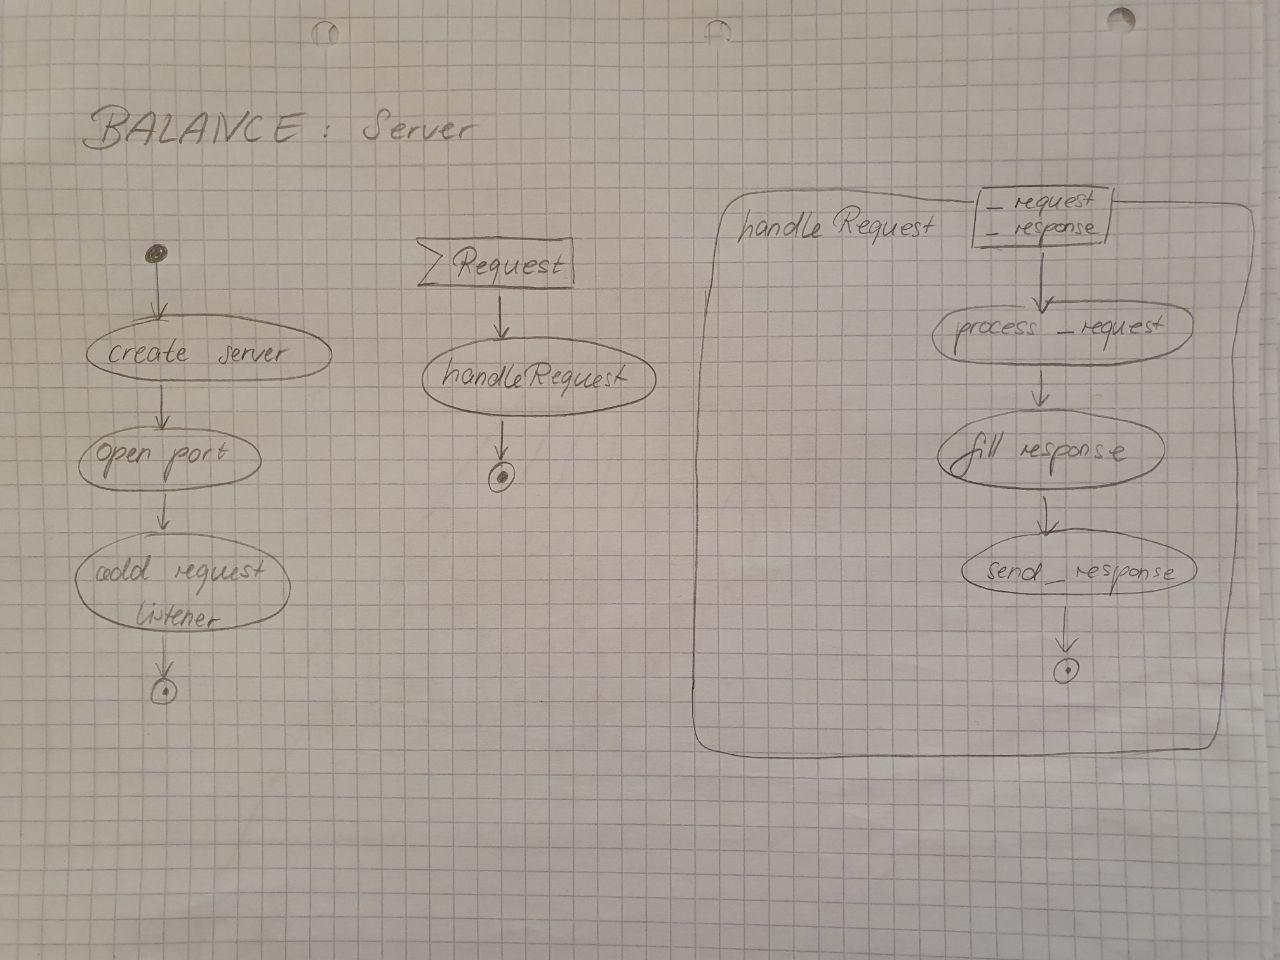 BALANCE: Server
create server
open port
add request
listener
Request
handleRequest
handleRequest
_ request
_ response
process _request
fill response
send_ response